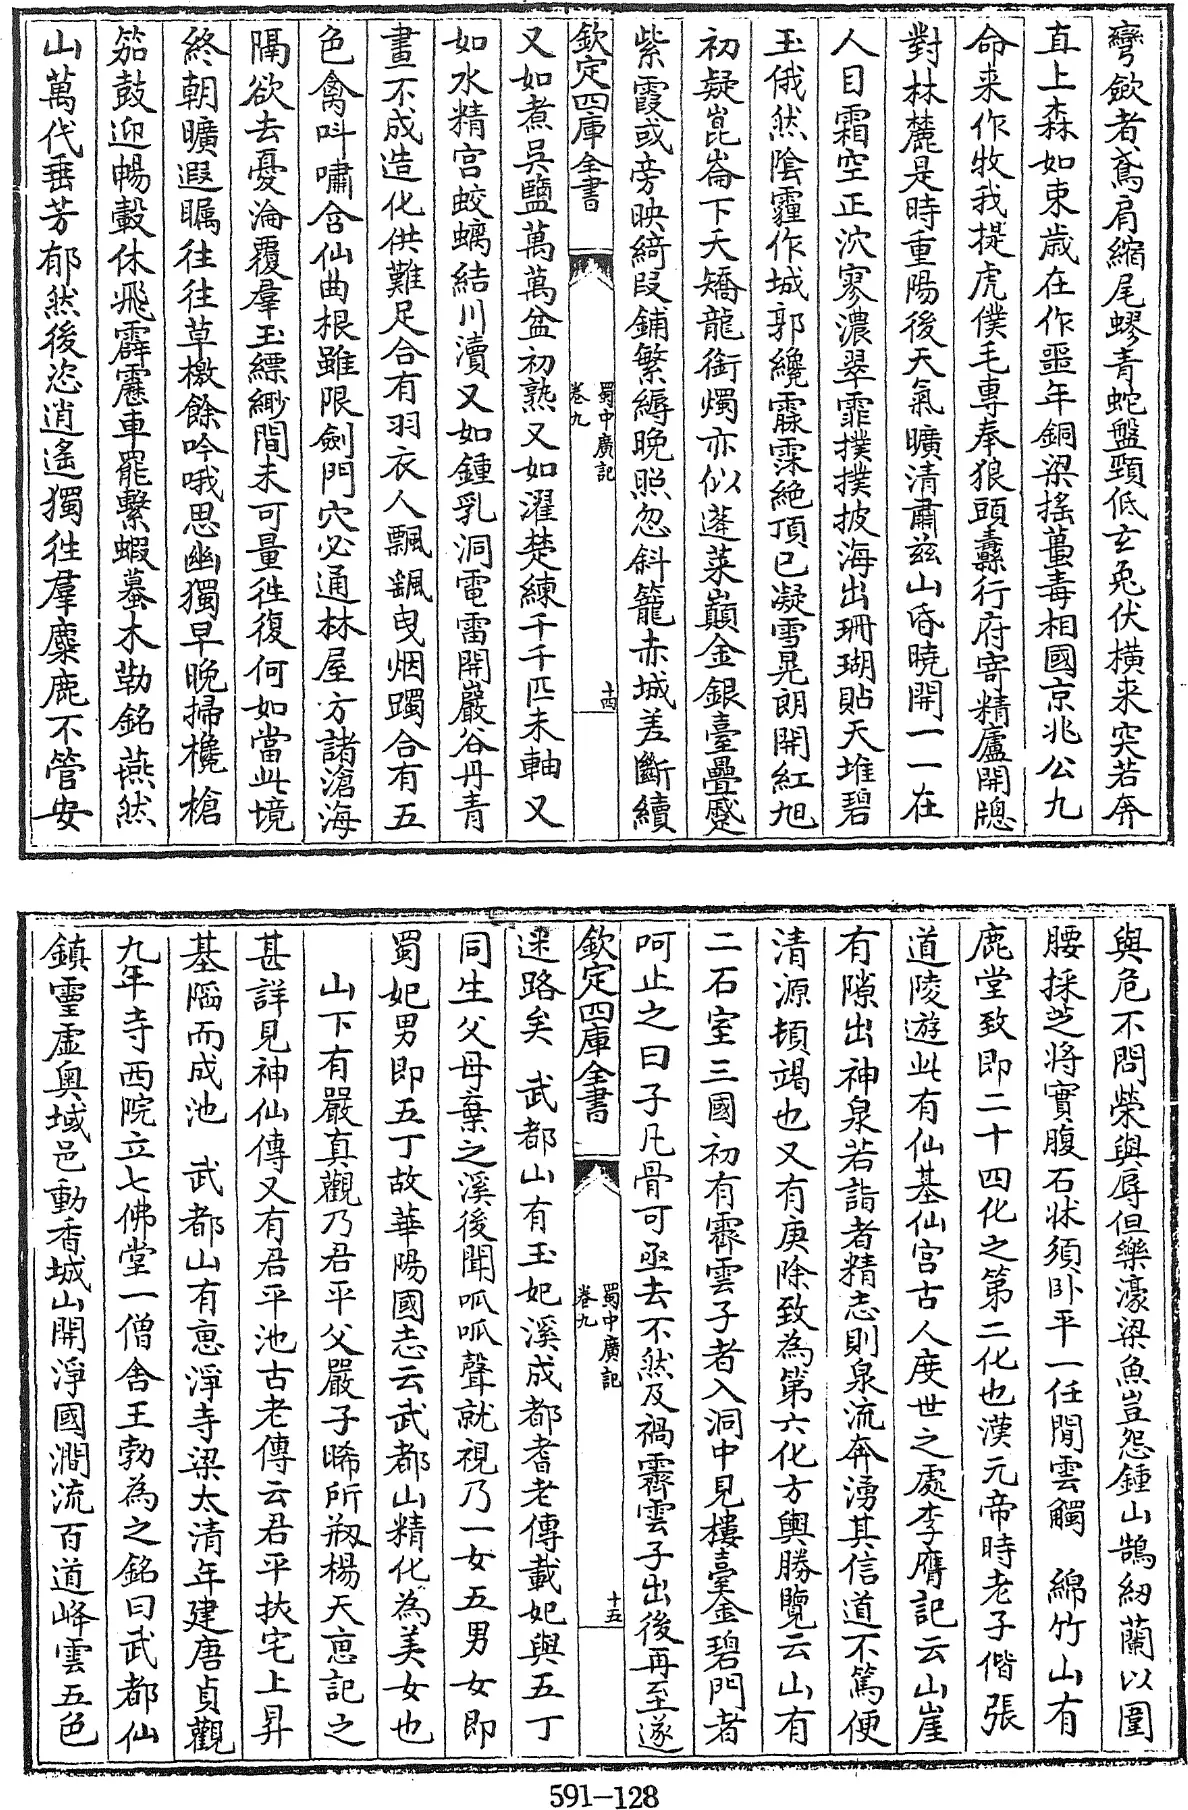 彎歛者鳶肩縮尾蟉青蛇盤頸低玄兎伏横来突若奔
直上森如束歳在作噩年銅梁摇蠆毒相國京兆公九
命来作牧我提虎僕毛專奉狼頭纛行府寄精廬開牕
對林麓是時重陽後天氣曠清肅兹山昏曉開一一在
人目霜空正泬寥濃翠霏撲撲披海出珊瑚貼天堆碧
玉俄然陰霾作城郭纔霡霂絶頂已凝雪晃朗開紅旭
初疑崑崙下夭矯龍銜燭亦似蓬萊巔金銀臺疊蹙
紫霞或旁映綺段鋪繁縟晩照忽斜籠赤城差斷續
欽定四庫全書
蜀中廣記
卷九
十四
又如煮吳鹽萬萬盆初熟又如濯楚練千千匹未軸又
如水精宫蛟螭結川瀆又如鍾乳洞電雷開巖谷丹青
畫不成造化供難足合有羽衣人飄颻曵烟躅合有五
色禽叫嘯含仙曲根雖限劍門穴必通林屋方諸滄海
隔欲去憂淪覆羣玉縹緲間未可量徃復何如當此境
終朝曠遐矚往往草檄餘吟哦思幽獨早晩掃欃槍
笳鼓迎暢轂休飛霹靂車罷繫蝦蟇木勒銘燕然
山萬代垂芳郁然後恣逍遙獨徃羣麋鹿不管安
與危不問榮與辱但樂濠梁魚豈怨鍾山鵠紉蘭以圍
腰採芝將實腹石牀須卧平一任閒雲觸　綿竹山有
鹿堂致即二十四化之第二化也漢元帝時老子偕張
道陵遊此有仙基仙宫古人度世之處李膺記云山崖
有隙出神泉若詣者精志則泉流奔湧其信道不篤便
清源頓竭也又有庚除致為第六化方輿勝覽云山有
二石室三國初有霽雲子者入洞中見樓臺金碧門者
呵止之曰子凡骨可亟去不然及禍霽雲子出後再至遂
欽定四庫全書
蜀中廣記
卷九
十五
迷路矣　武都山有玉妃溪成都耆老傳載妃與五丁
同生父母棄之溪後聞呱呱聲就視乃一女五男女即
蜀妃男即五丁故華陽國志云武都山精化為美女也
山下有嚴真觀乃君平父嚴子晞所剏楊天恵記之
甚詳見神仙傳又有君平池古老傳云君平㧞宅上昇
基陷而成池　武都山有恵淨寺梁太清年建唐貞觀
九年寺西院立七佛堂一僧舍王勃為之銘曰武都仙
鎮靈虚奥域邑動香城山開淨國澗流百道峰雲五色
591-128